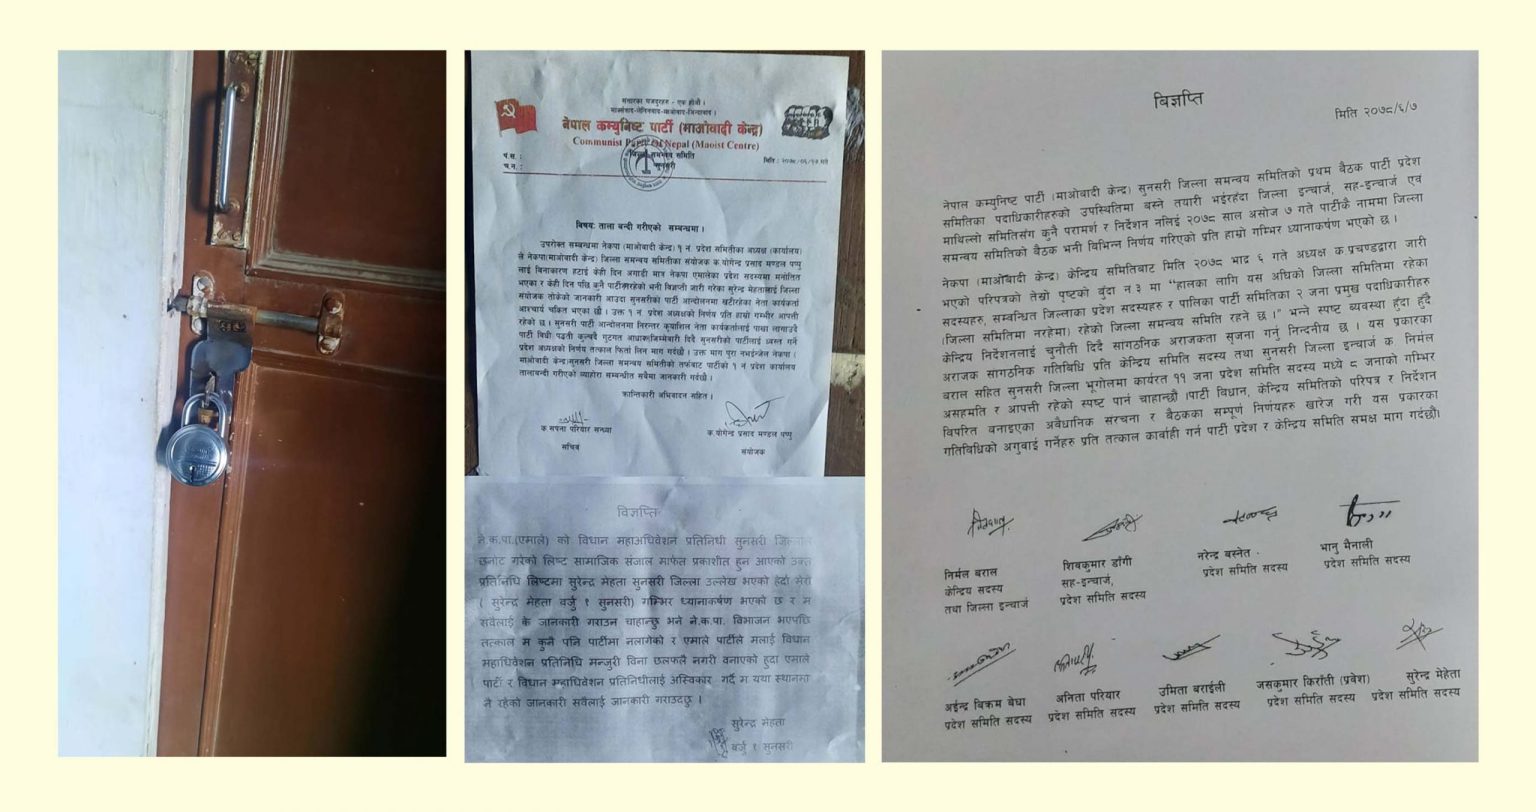 संसारका मजदुरहरु - एक होऔं ।
मार्क्सवाद-लेनिनवाद-माओवाद-जिन्दावाद ।
नेपाल कम्युनिष्ट पार्टी (माओवादी केन्द्र)
Communist Party Of Nepal (Maoist Centre)
जिल्ला समन्वय समिति
सुनसरी
प.स. :
च.न. :
मिति :
विषय: ताला बन्दी गरीएको सम्बन्धमा ।
उपरोक्त सम्बन्धमा नेकपा (माओवादी केन्द्र) १ नं. प्रदेश समितीका अध्यक्ष (कार्यालय)
ले नेकपा(माओवादी केन्द्र) जिल्ला समन्वय समितिका संयोजक क योगेन्द्र प्रसाद मण्डल पप्पु
लाई बिनाकारण हटाई केही दिन अगाडी मात्र नेकपा एमालेका प्रदेश सदस्यमा मनोनित
भएका र केही दिन पछि कुनै पार्टीमा नरहेको भनी विज्ञप्ती जारी गरेका सुरेन्द्र मेहतालाई जिल्ला
संयोजक तोकेको जानकारी आउदा सुनसरीको पार्टी आन्दोलनमा खटीरहेका नेता कार्यकर्ता
आश्चार्य चकित भएका छौ । उक्त १ नं. प्रदेश अध्यक्षको निर्णय प्रति हाम्रो गम्भीर आपत्ती
रहेको छ । सुनसरी पार्टी आन्दोलनमा निरन्तर कृयाशिल नेता कार्यकर्तालाई पाखा लागाउदै
पार्टी विधी पद्धती कुल्चदै गुटगत आधारमा जिम्मेवारी दिदै सुनसरीको पार्टीलाई ध्वस्त गर्ने
प्रदेश अध्यक्षको निर्णय तत्काल फिर्ता लिन माग गर्दछौ । उक्त माग पुरा नभईन्जेल नेकपा (
माओवादी केन्द्र)सुनसरी जिल्ला समन्वय समितिको तर्फबाट पार्टीको १ नं प्रदेश कार्यालय
तालाबन्दी गरीएको व्याहोरा सम्बन्धीत सबैमा जानकारी गर्दछौ ।
क्रान्तिकारी अभिवादन सहित ।
क सपना परियार सन्ध्या
सचिव
क.योगेन्द्र प्रसाद मण्डल पप्पु
संयोजक
विज्ञप्ति
ने.क.पा.(एमाले) को विधान महाअधिवेशन प्रतिनिधी सुनसरी जिल्लाले
छनोट गरेको लिष्ट सामाजिक संजाल मार्फत प्रकाशीत हुन आएको उक्त
प्रतिनिधि लिष्टमा सुरेन्द्र मेहता सुनसरी जिल्ला उल्लेख भएको हेर्दा मेरो
( सुरेन्द्र मेहता वर्जु १ सुनसरी) गम्भिर ध्यानाकर्षण भएको छ र म
सवैलाई के जानकारी गराउन चाहान्छु भने ने.क.पा. विभाजन भएपछि
तत्काल म कुनै पनि पार्टीमा नलागेको र एमाले पार्टीले मलाई विधान
महाधिवेशन प्रतिनिधि मन्जुरी विना छलफलै नगरी वनाएको हुदा एमाले
पार्टी र विधान महाधिवेशन प्रतिनिधीलाई अस्विकार गर्दै म यथा स्थानमा
नै रहेको जानकारी सवैलाई जानकारी गराउदछु ।
सुरेन्द्र मेहता
वर्जु १ सुनसरी
विज्ञप्ति
मिति २०७८/६/७
नेपाल कम्युनिष्ट पार्टी (माओवादी केन्द्र) सुनसरी जिल्ला समन्वय समितिको प्रथम बैठक पार्टी प्रदेश
समितिका पदाधिकारीहरुको उपस्थितिमा बस्ने तयारी भईरहंदा जिल्ला इन्चार्ज, सह-इन्चार्ज एवं
माथिल्लो समितिसंग कुनै परामर्श र निर्देशन नलिई २०७८ साल असोज ७ गते पार्टीकै नाममा जिल्ला
समन्वय समितिको बैठक भनी विभिन्न निर्णय गरिएको प्रति हाम्रो गम्भिर ध्यानाकर्षण भएको छ ।
नेकपा (माओवादी केन्द्र) केन्द्रिय समितिबाट मिति २०७८ भाद्र ६ गते अध्यक्ष क.प्रचण्डद्वारा जारी
भएको परिपत्रको तेस्रो पृष्टको बुंदा न.३ मा "हालका लागि यस अघिको जिल्ला समितिमा रहेका
सदस्यहरु, सम्वन्धित जिल्लाका प्रदेश सदस्यहरु र पालिका पार्टी समितिका २ जना प्रमुख पदाधिकारीहरु
(जिल्ला समितिमा नरहेमा) रहेको जिल्ला समन्वय समिति रहने छ ।" भन्ने स्पष्ट ब्यवस्था हुँदा हुँदै
केन्द्रिय निर्देशनलाई चुनौती दिदै सांगठनिक अराजकता सृजना गर्नु निन्दनीय छ । यस प्रकारका
अराजक सांगठनिक गतिविधि प्रति केन्द्रिय समिति सदस्य तथा सुनसरी जिल्ला इन्चार्ज क. निर्मल
बराल सहित सुनसरी जिल्ला भूगोलमा कार्यरत ११ जना प्रदेश समिति सदस्य मध्ये ८ जनाको गम्भिर
असहमति र आपत्ती रहेको स्पष्ट पार्न चाहान्छौं ।पार्टी विधान, केन्द्रिय समितिको परिपत्र र निर्देशन
विपरित बनाइएका अवैधानिक संरचना र बैठकका सम्पूर्ण निर्णयहरु खारेज गरी यस प्रकारका
गतिविधिको अगुवाई गर्नेहरु प्रति तत्काल कार्वाही गर्न पार्टी प्रदेश र केन्द्रिय समिति समक्ष माग गर्दछौं।
निर्मल बराल
केन्द्रिय सदस्य
तथा जिल्ला इन्चार्ज
शिबकुमार डाँगी
सह-इन्चार्ज,
प्रदेश समिति सदस्य
नरेन्द्र बस्नेत
प्रदेश समिति सदस्य
भानु मैनाली
प्रदेश समिति सदस्य
अईन्द्र बिक्रम बेघा
प्रदेश समिति सदस्य
अनिता परियार
प्रदेश समिति सदस्य
उमिता बराईली
प्रदेश समिति सदस्य
जसकुमार किराँती (प्रवेश)
प्रदेश समिति सदस्य
सुरेन्द्र मेहेता
प्रदेश समिति सदस्य